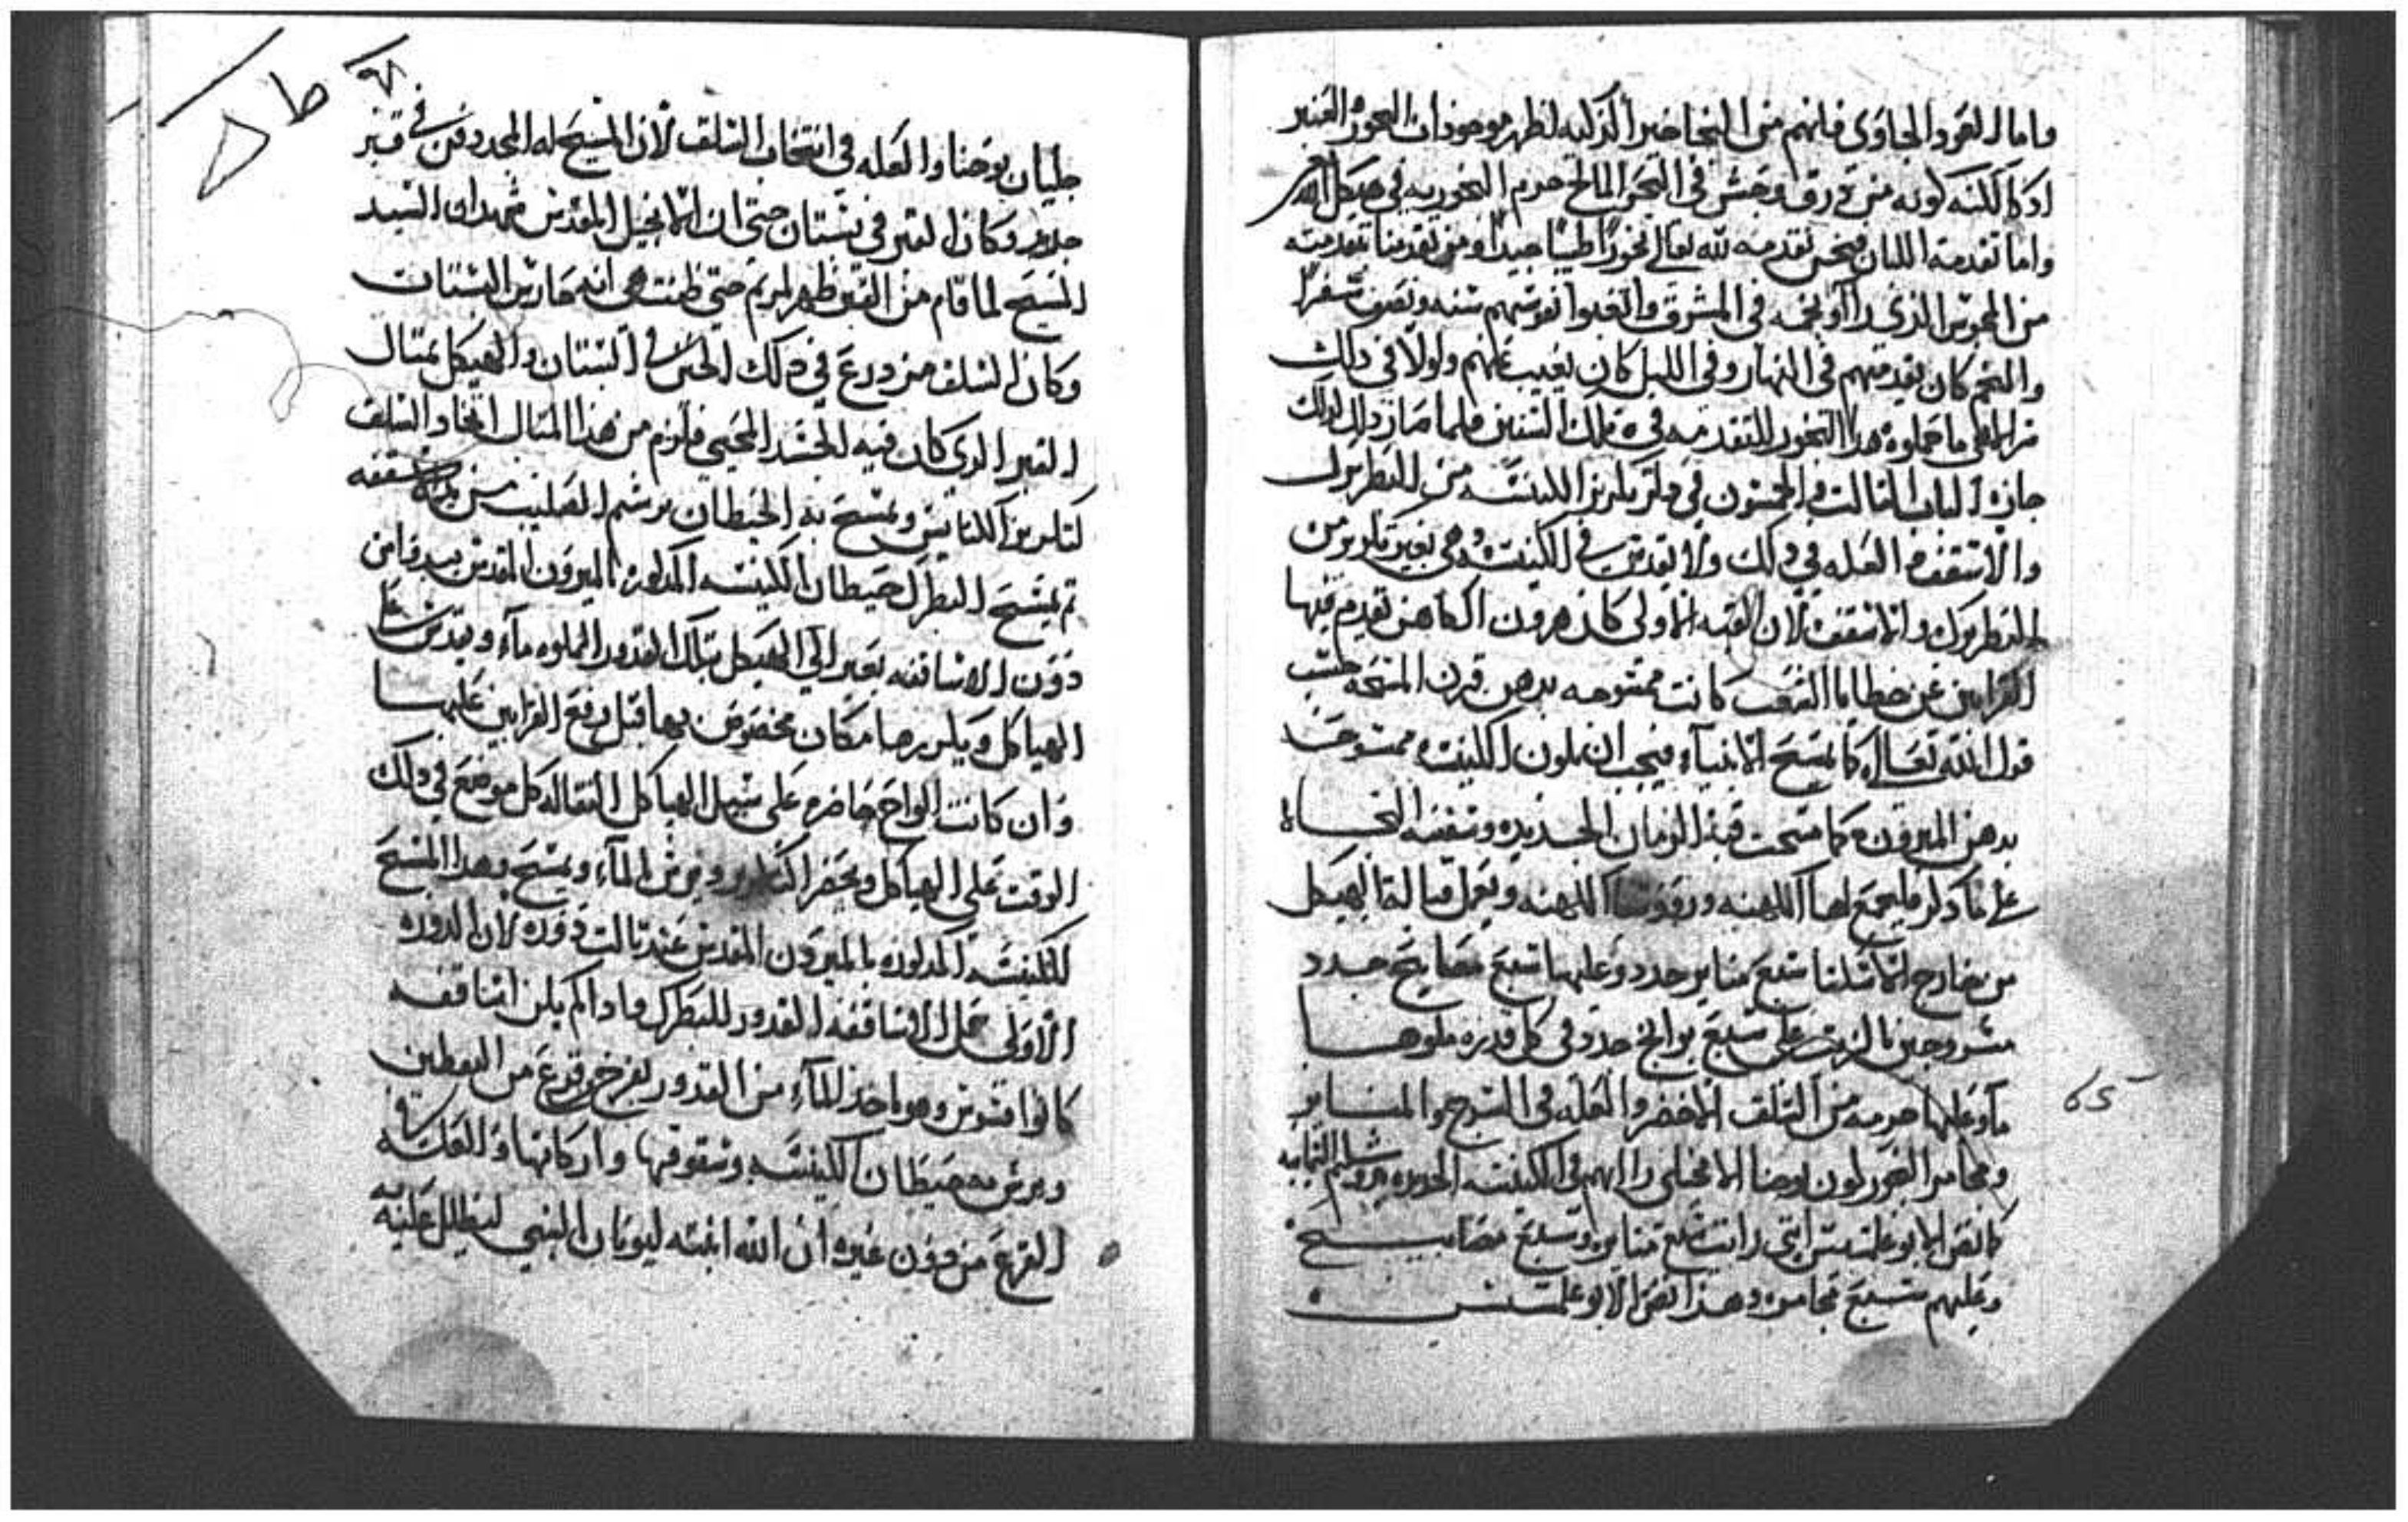 واما العود الجاوي فانهم من النجا خبر الزكيه لظهر موجودات البحور العنبر
اذكا لكنه كونه من ورق وحش في البحر المالح حرم البخور به في هيكل الله
واما تقدمة اللبان فنحن نقدمه لله تعالى بخورًا طيبًا جيدًا ومن تقدمنا تقدمته
من المجوس الذي راوا نجمه في المشرق واتعبوا نفوسهم سنه ونصف سفرًا
والنجم كان يقدمهم في النهار وفي الليل كان يغيب عنهم ولولا في ذلك
ما حملوه هذا البخور للتقدمه في تلك السنين فلما صار ذلك لذلك
جازه الباب الثالث والخمسون في ذكر تكريز الكنيسه من البطريرك
والاسقف والعله في ذلك ولا يقدس في الكنيسه وهي بغير تكريز من
البطريرك والاسقف لان القبه الاولى كان هرون الكاهن يقدم فيها
القرابين عن خطايا الشعب كانت ممسوحه بدهن قرن المسحه حسب
قول الله تعالى كما تمسح الانبياء فيجب ان تكون الكنيسه ممسوحه
بدهن الميرون كما مسحت قبة الزمان الجديده وسفينه النجاه
على ما ذكر فليجمع لها الكهنه وروسا الكهنه ويعمل قبالة الهيكل
من خارج الاسكنا سبع منابر جدد وعليها سبع مصابيح جدد
مسروجين بالزيت على سبع برابخ جدد وفي كل قدره ملوها
مآء وعليها حزمه من السلق الاخضر والعله في السرج والمنابر
ومجامر البخور لكون يوحنا الانجيلي راهم في الكنيسه الجديده يروشليم التانيه
كما نص الابوغلمسيس انني رايت سبع منابر وسبع مصابيح
وعليهم سبع مجامر وهذا نص الابوغلمسيس
٩١
جليان يوحنا والعله في انتخاب السلق لان المسيح له المجد دفن في قبر
جديد وكان القبر في بستان حتى ان الانجيل المقدس شهد ان السيد
المسيح لما قام من القبر ظهر لمريم حتى ظنت هي انه حارس البستان
وكان السلق مزدرع في ذلك الحين في البستان والهيكل بمثال
القبر الذي كان فيه الجسد المحيي فلزم من هذا المثال اتخاذ السلق
لتكريز الكنايس ويمسح به الحيطان برشم الصليب من يد الاسقفه
ثم يمسح البطرك حيطان الكنيسه المذكوره بالميرون المقدس بيده من
دون الاساقفه يعبر الى الهيكل بتلك القدور المملوه مآء ويقدس على
الهياكل ويكرزها مكان مخصوص بها قبل رفع القرابين عليها
وان كانت الواح حاضره على سبيل الهياكل النقاله كل موضع في ذلك
الوقت على الهياكل ويحضر التكريز ويرش المآء ويمسح وهذا المسح
للكنيسه المذكوره بالميرون المقدس عند ثالث دوره لان الدوره
الاولى حمل الاساقفه القدور للبطرك واذا لم يكن اساقفه
كانوا قسوس وهو ياخذ المآء من القدور بفرخ قرع من اليقطين
ويرش به حيطان الكنيسه وسقوفها واركانها والعله في
القرع من دون غيره ان الله انبته ليونان النبي ليظلل عليه به
65